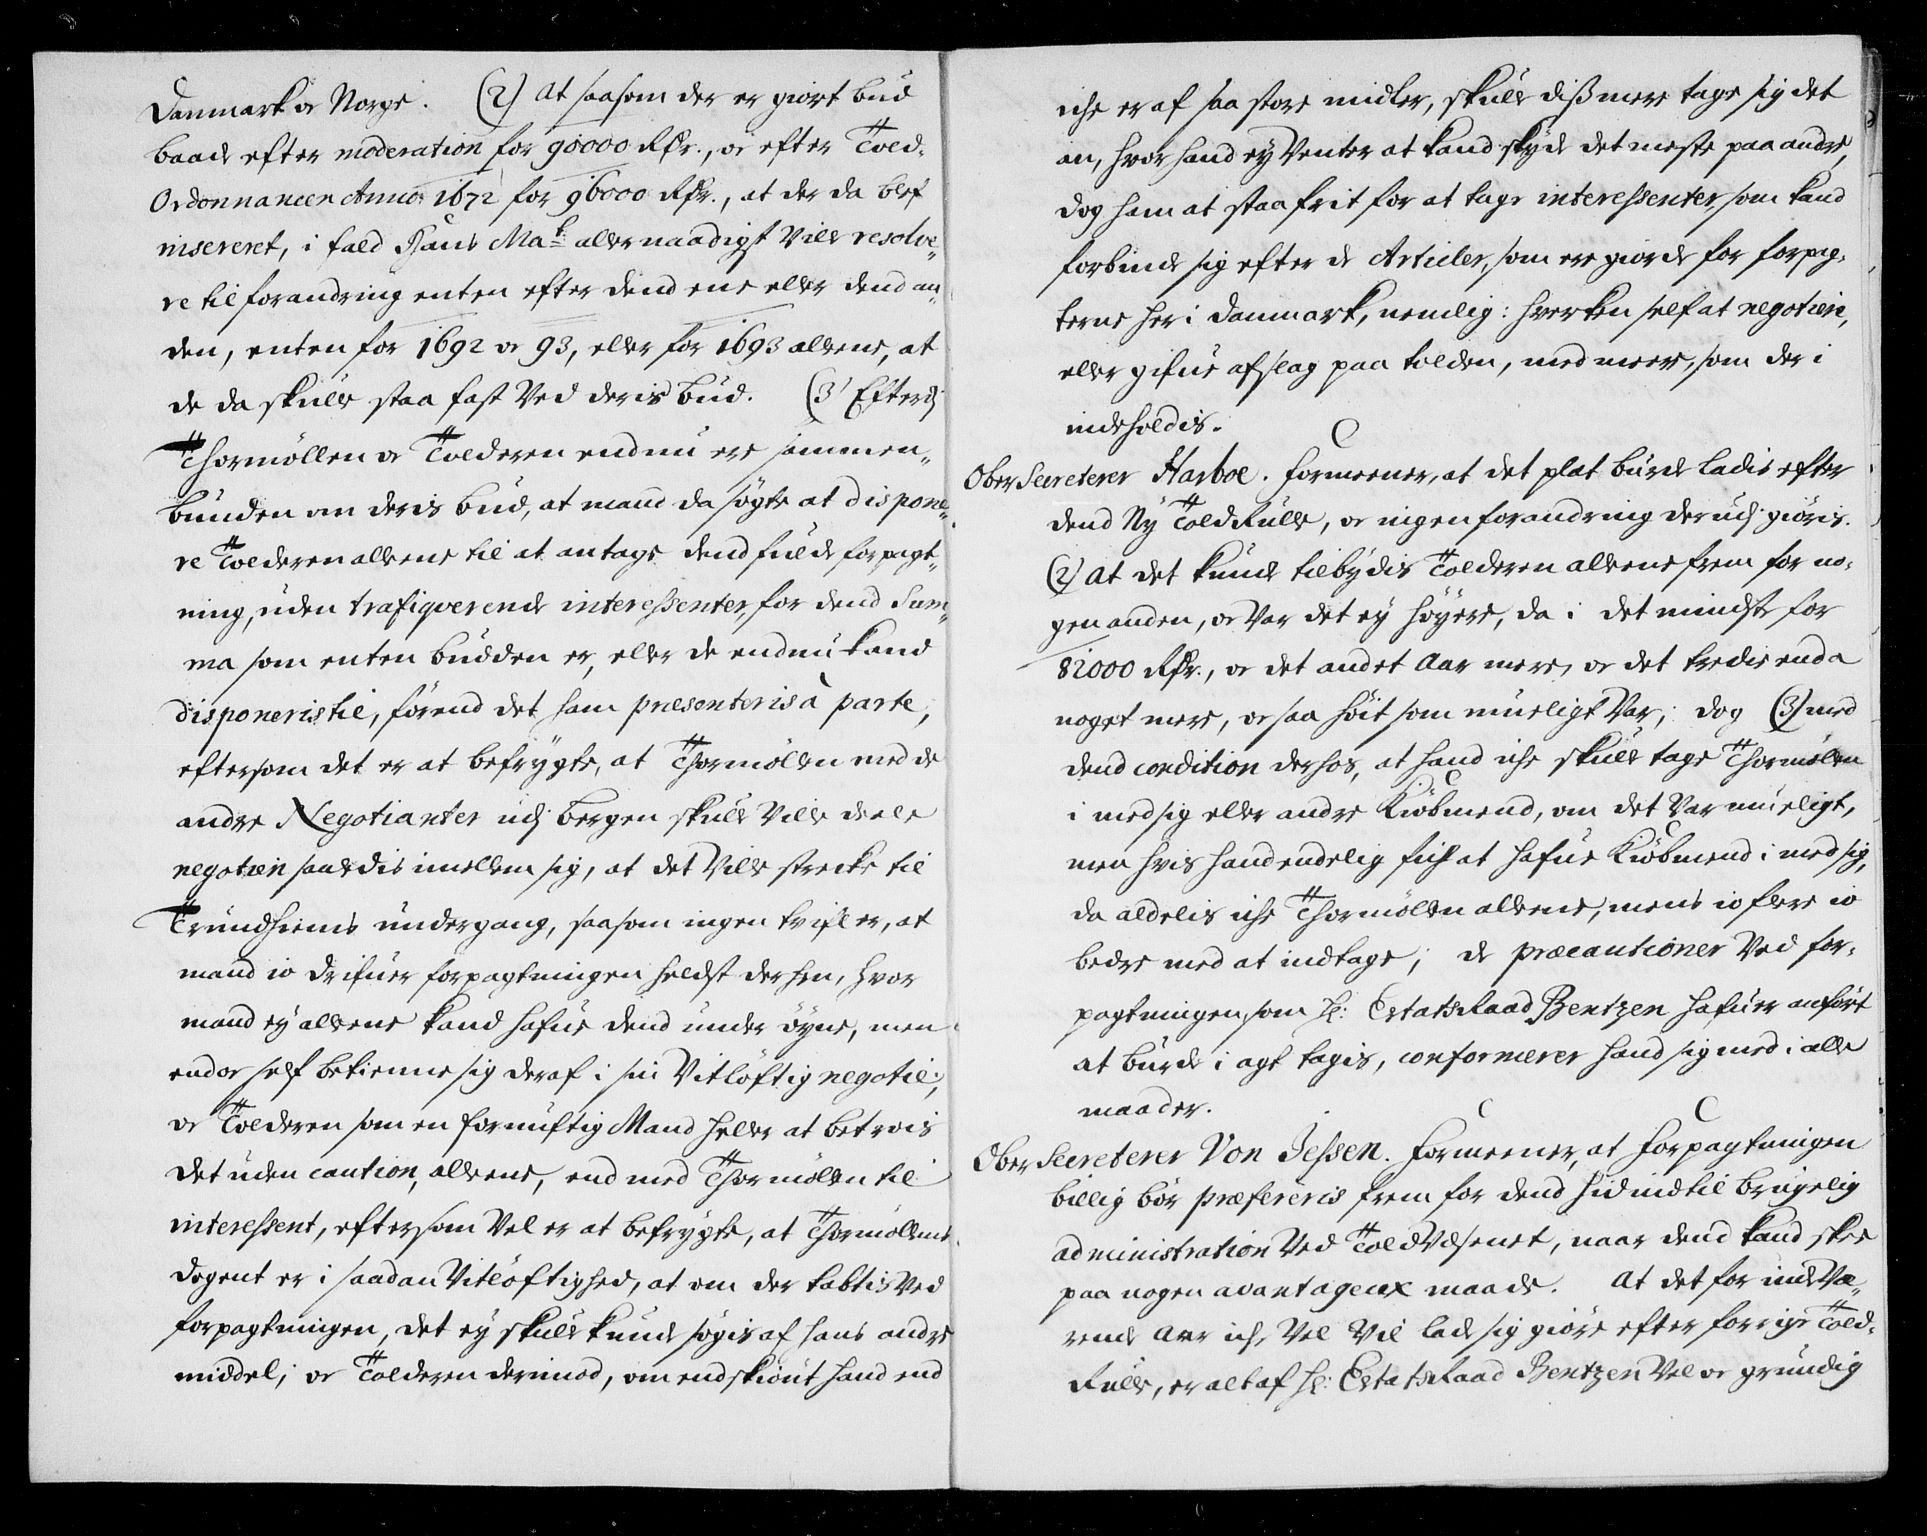 Danmark oc Norge. (2) At saasom der er giort bud
baade efter moderation for 90000 Rdr., oc efter Told-
Ordonnancen Anno 1672 for 96000 Rdr., at der da blef
insereret, i fald Hans May:t allernaadigst Ville resolve-
re til forandring enten efter dend ene eller dend an-
den, enten for 1692 oc 93, eller for 1693 allene, at
de da skulle staa fast Ved deris bud. (3) Efterdj
Thormöllen oc Tolderen endnu ere sammen-
bunden om deris bud, at mand da søgte at dispone-
re Tolderen allene til at antage dend fulde forpagt-
ning, uden trafiqverende interessenter, for dend Sum-
ma som enten budden er, eller de endnu kand
disponeris til, förend det ham præsenteris à parte,
eftersom det er at befrygte, at Thormöllen med de
andre Negotianter udj Bergen skulle Ville deele
negotien saaledis imellem sig, at det Ville strecke til
Trundhiems undergang, saasom ingen tvifl er, at
mand io drifuer forpagtningen heldst derhen, hvor
mand ey allene kand hafue dend under öyne, men
endoc self betienne sig deraf i sin Vitlöftig negotie,
oc Tolderen som en fornuftig Mand heller at betrois
det uden caution, allene, end med Thormöllen til
interessent, eftersom Vel er at befrygte, at Thormöllens
Vogent er i saadan Vitlöftighed, at om der tabtis Ved
forpagtningen, det ey skulle kunde søgis af hans andre
middel; oc Tolderen derimod, om endskiönt hand end
iche er af saa store midler, skulle diss mere tage sig det
an, hvor hand ey Venter at kand skyde det meste paa andre,
dog ham at staa frit for at tage interessenter, som kand
forbinde sig efter de Articler, som ere giorde for forpag-
terne her i Danmark, nemlig: hverken self at negotiere,
eller gifue afslag paa tolden, med meere, som der i
indeholdis.
Ober Secreterer Harboe. formeener, at det plat burde ladis efter
dend Ny Told Rulle, oc ingen forandring derudj giöris.
(2) At det kunde tilbydis Tolderen allene frem for no-
gen anden, oc Var det ey höyere, da i det mindste for
82000 Rdr., oc det andet Aar mere, oc det tredie enda
noget mere, oc saa höit som mueligt Var; dog (3) med
dend condition derhos, at hand iche skulle tage Thormölen
i med sig eller andre Kiöbmend, om det Var mueligt,
men hvis hand endelig fich at hafue Kiöbmend i med sig,
da aldelis iche Thormöllen allene, mens io flere io
bedre med at indtage; de præcautioner Ved for-
pagtningen, som Hr: Etats Raad Bentzen hafuer anfört
at burde i agt tagis, conformerer hand sig med i alle
maader.
Ober Secreterer Von Jessen. formeener, at forpagtningen
billig bör præfereris frem for dend hid indtil brugelig
administration Ved Told Væsenet, naar dend kand skee
paa nogen avantageux maade. At det for inde Væ-
rende Aar iche Vel Vil lade sig giöre efter forrige Told-
Rulle, er alt af Hr: Etats Raad Bentzen Vel oc grundig